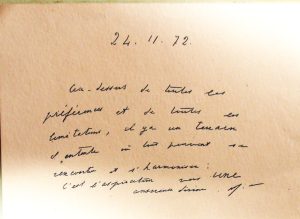 24.11.72.
Au-dessus de toutes les
préférences et de toutes les
limitations, il y a un terrain
d'entente où tous peuvent se
rencontrer et s'harmoniser:
c'est l'aspiration vers une
conscience divine.